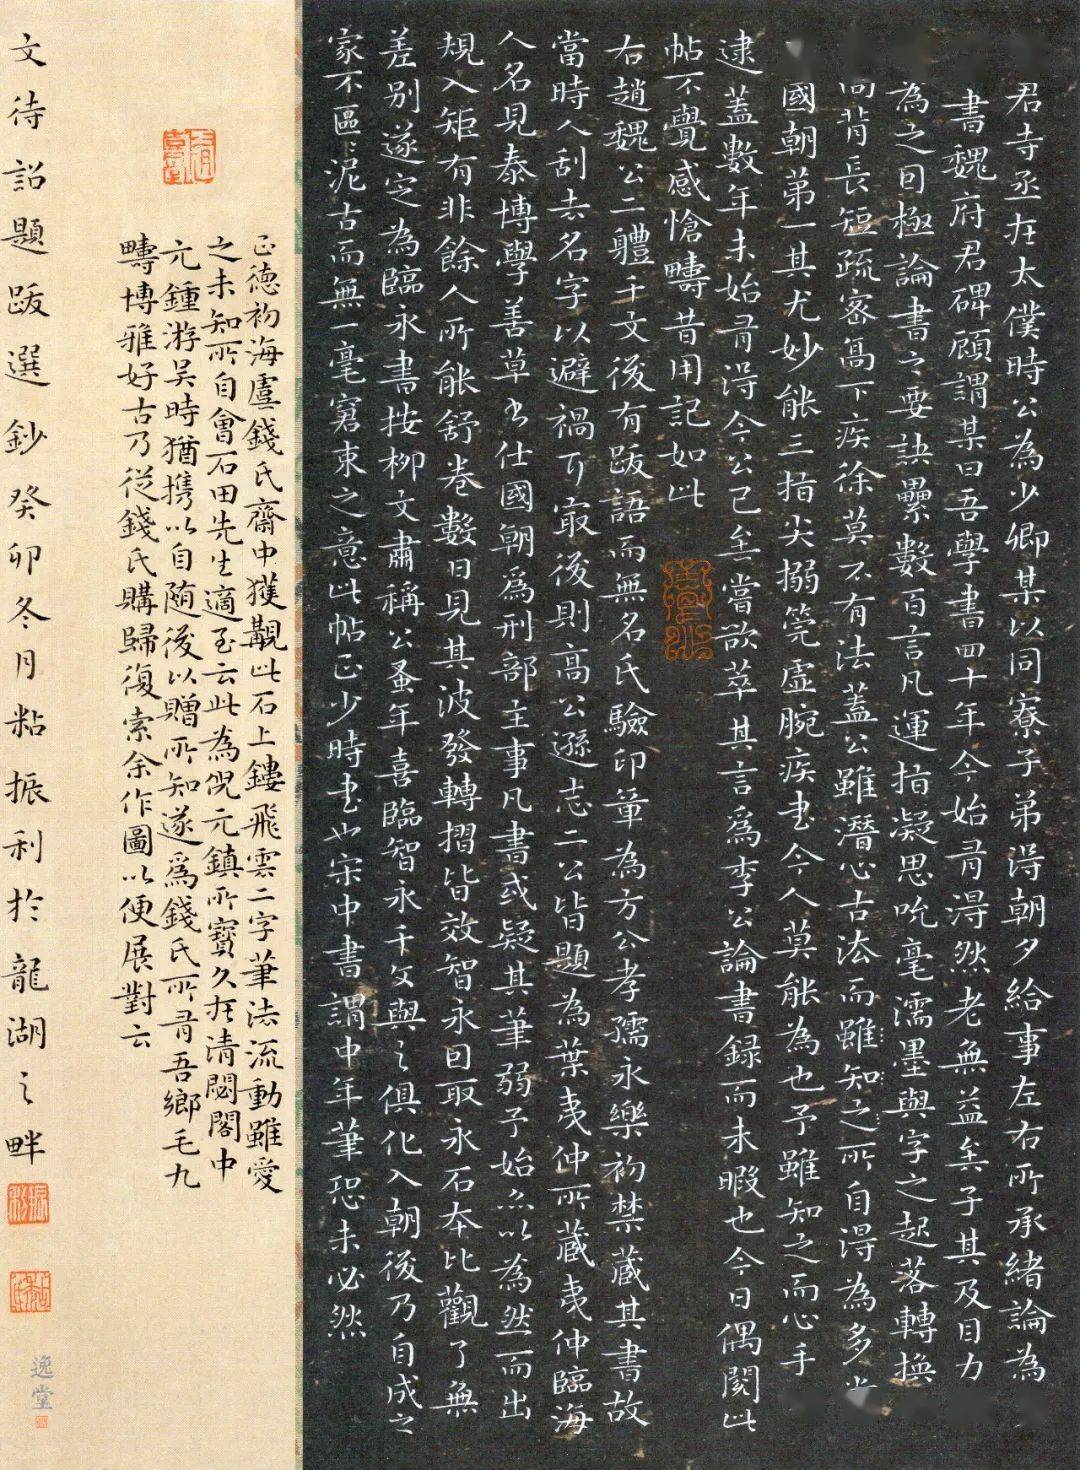 君寺丞在太僕時公為少卿某以同寮子弟得朝夕給事左右所承緒論為
書魏府君碑顧謂某曰吾學書四十年今始有得然老無益矣子其及目力
為之因極論書之要訣纍數百言凡運指凝思吮毫濡墨與字之起落轉換
向背長短疏密高下疾徐莫不有法蓋公雖潛心古法而雖知之所自得為多當
國朝第一其尤妙能三指尖搦筦虛腕疾书今人莫能為也予雖知之而心手
逮蓋數年未始有得今公已矣嘗欲萃其言為李公論書録而未暇也今日偶閱此
帖不覺感愴疇昔用記如此
右趙魏公二體千文後有跋語而無名氏驗印章為方公孝孺永樂初禁藏其書故
當時人刮去名字以避禍耳最後則高公遜志二公皆題為葉夷仲所藏夷仲臨海
人名見泰博學善草书仕國朝為刑部主事凡書或疑其筆弱子始亦以為然一而出
規入矩有非餘人所能舒卷數日見其波發轉摺皆效智永因取永石本比觀了無
差别遂定為臨永書按柳文肅稱公蚤年喜臨智永千文與之俱化入朝後乃自成之
家不區區泥古而無一毫窘束之意此帖正少時书也宋中書謂中年筆恐未必然
正德初海虞錢氏齋中獲觀此石上鏤飛雲二字筆法流動雖愛
之未知所自會石田先生適至云此為倪元鎮所寶久在清閟閣中
元鍾游吴時猶携以自随後以贈所知遂為錢氏所有吾鄉毛九
疇博雅好古乃從錢氏購歸復索余作圖以便展對云
文待詔題跋選鈔癸卯冬月粘振利於龍湖之畔
逸堂